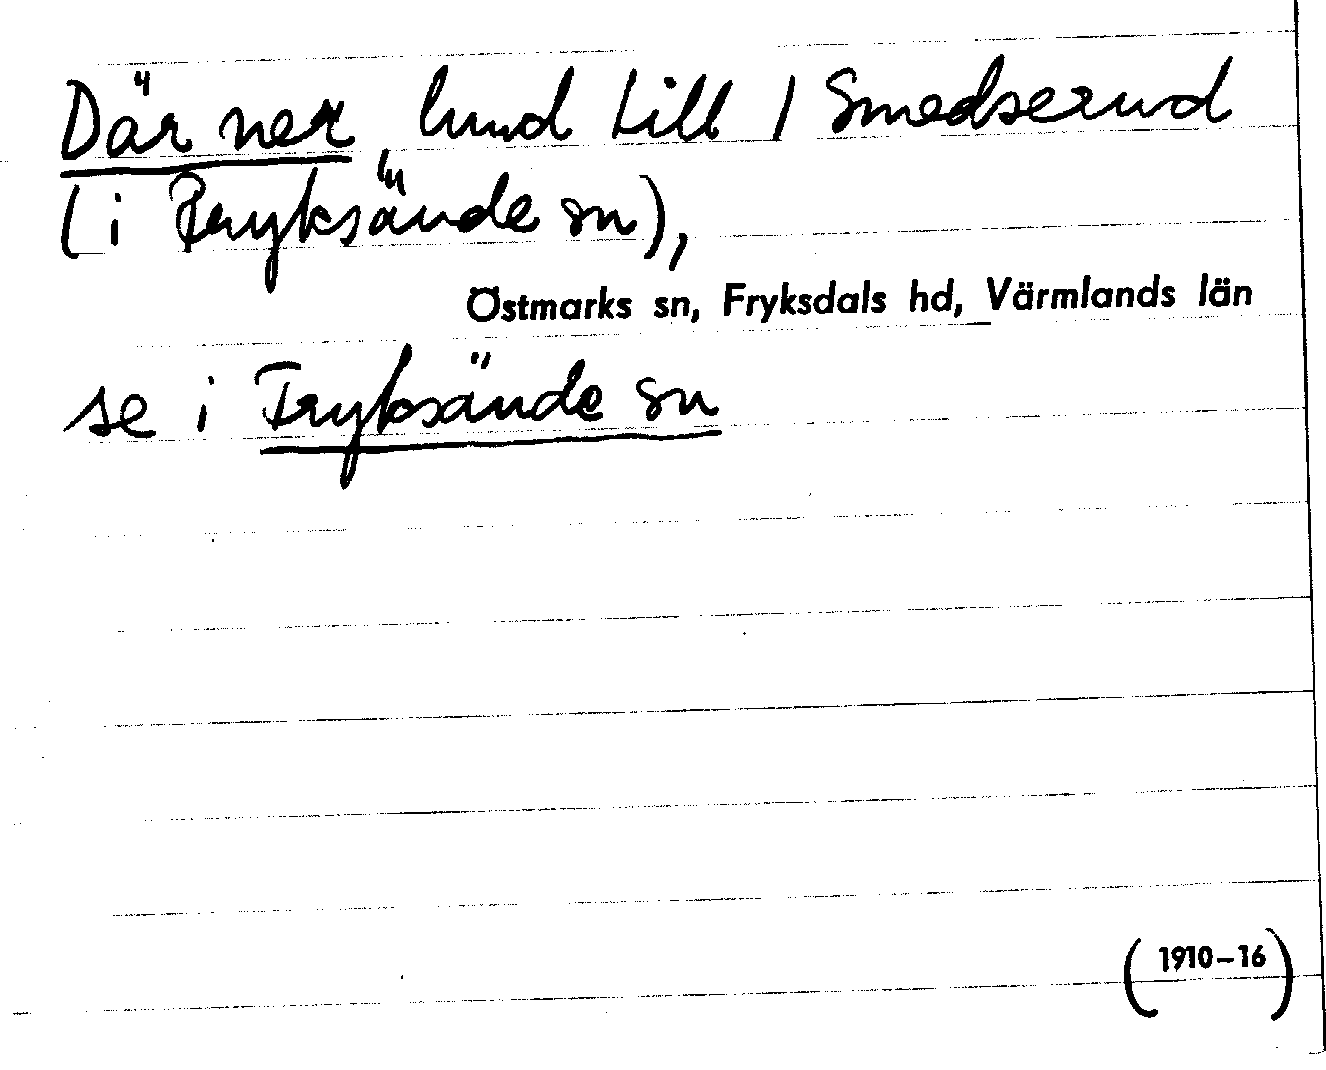 Där ner, lund till 1 Smedserud
(i Fryksände sn),
Östmarks sn, Fryksdals hd, Värmlands län
se i Fryksände sn
(1910–16)